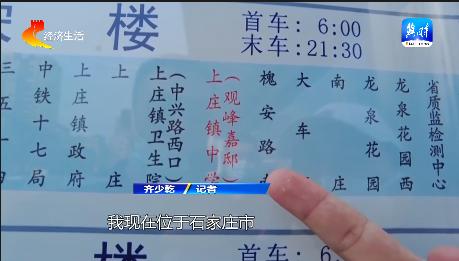 经济生活
冀时
楼
首车: 6:00
末车:21:30
三五十
中铁十七局
上庄镇政府
上庄
上庄镇卫生院
(中兴路西口)
上庄镇中学
(观峰嘉邸)
槐安路
大车
南庄
龙泉花园
龙泉花园西
省质监检测中心
齐少乾 记者
我现在位于石家庄市
楼
首车: 6:0